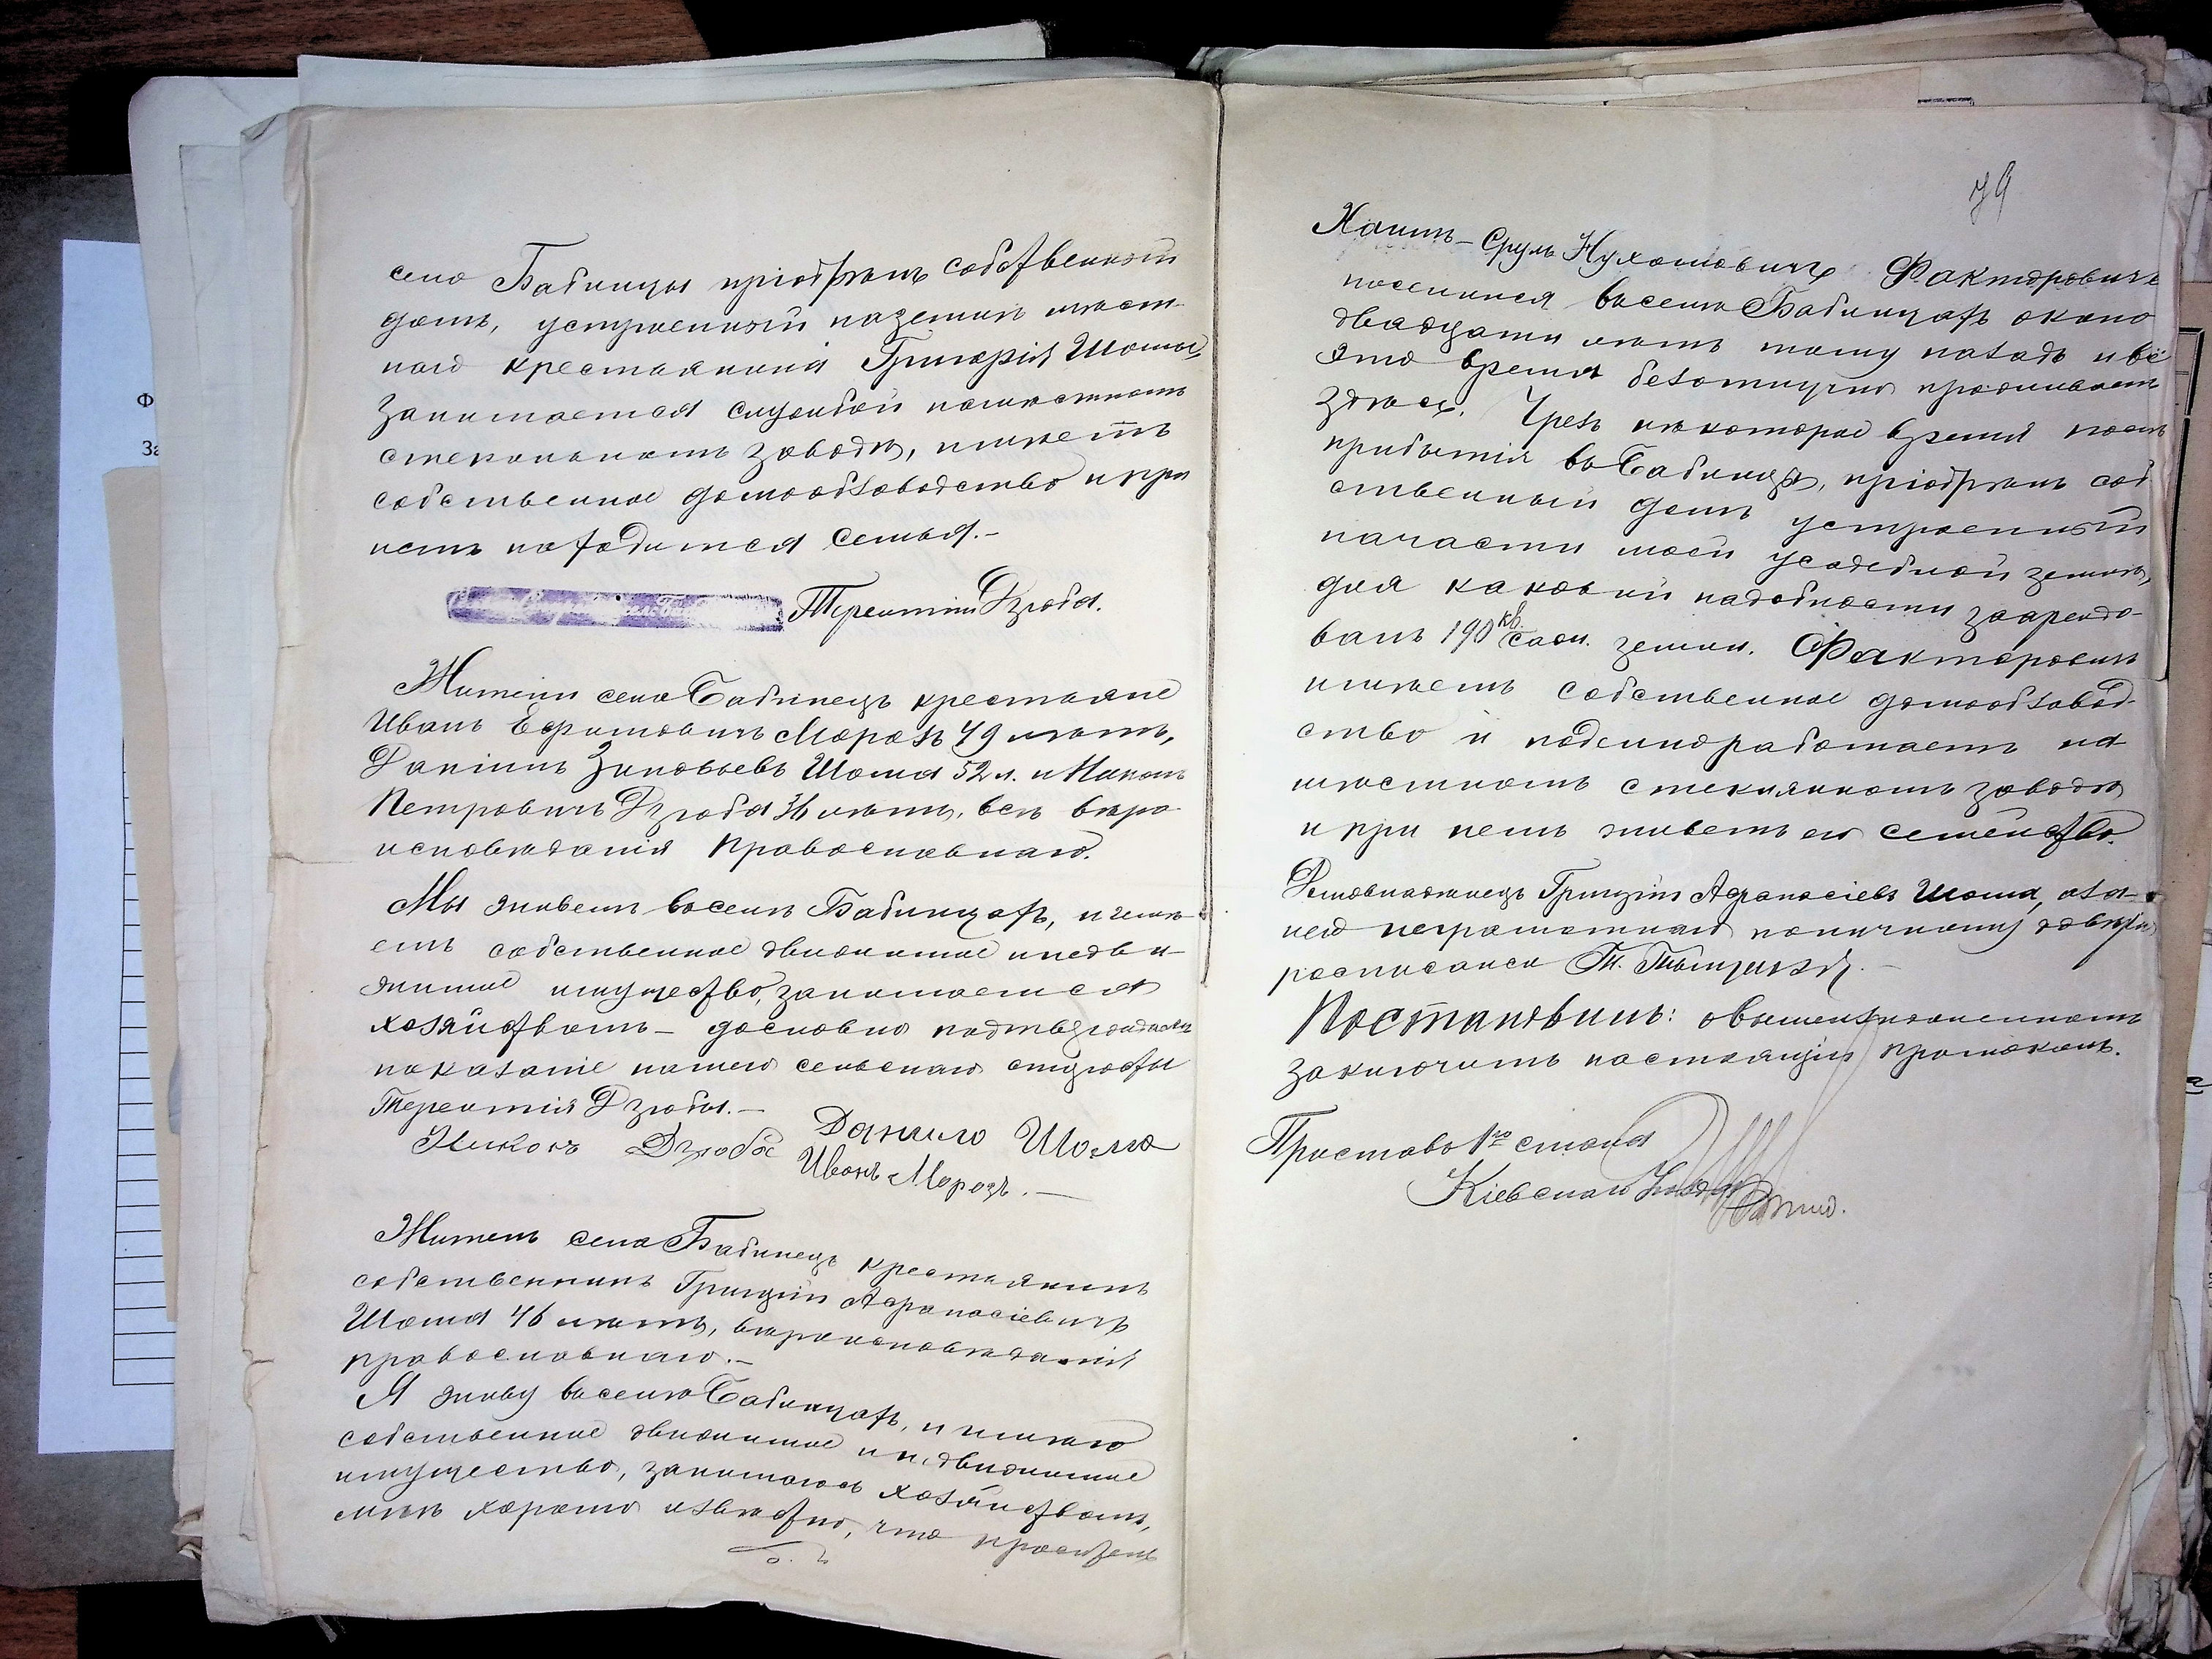 село Бабинцы пріобрѣлъ собственный
домъ, устроенный на земли мѣст-
наго крестьянина Григорія Шомы,
занимается службой на мѣстномъ
стекольномъ заводѣ, имѣетъ
собственное домообзаводство и при
немъ находится семья.-
Терентій Дзюба.
Жители села Бабинецъ крестьяне
Иванъ Ефимовичъ Морозъ 49 лѣтъ,
Даніилъ Зиновьевъ Шома 52 л. и Никонъ
Петровичъ Дзюба 36 лѣтъ, всѣ вѣро-
исповѣданія православнаго.
Мы живемъ въ селѣ Бабинцахъ, имѣ-
емъ собственное движимое и недви-
жимое имущество, занимаемся
хозяйствомъ - дословно подтверждаемъ
показаніе нашего сельскаго старосты
Терентія Дзюбы.-
Никонъ Дзюба Данило Шома
Иванъ Морозъ.-
Житель села Бабинецъ крестьянинъ
собственникъ Григорій Афанасіевичъ
Шома 46 лѣтъ, вѣроисповѣданія
православнаго.-
Я живу въ селѣ Бабинцахъ, и имѣю
собственное движимое и недвижимое
имущество, занимаюсь хозяйствомъ,
мнѣ хорошо извѣстно, что проситель
79
Хаимъ-Сруль Нухимовичъ Факторовичъ
поселился въ селѣ Бабинцахъ около
двадцати лѣтъ тому назадъ и всё
это время безотлучно проживаетъ
здѣсь. Чрезъ нѣкоторое время послѣ
прибытія въ Бабинцы, пріобрѣлъ соб
ственный домъ устроенный
на части моей усадебной земли,
для каковой надобности заарендо-
валъ 190 кв. саж. земли. Факторовичъ
имѣетъ собственное домообзавод-
ство и поденно работаетъ на
мѣстномъ стеклянномъ заводѣ
и при немъ живетъ его семейство.
Домовладѣлецъ Григорій Афанасіевъ Шома, а за
него неграмотнаго по личному довѣрію
росписался
Постановилъ: о вышеизложенномъ
заключить настоящій протоколъ.
Приставъ 1го стана
Кіевскаго Уѣзда